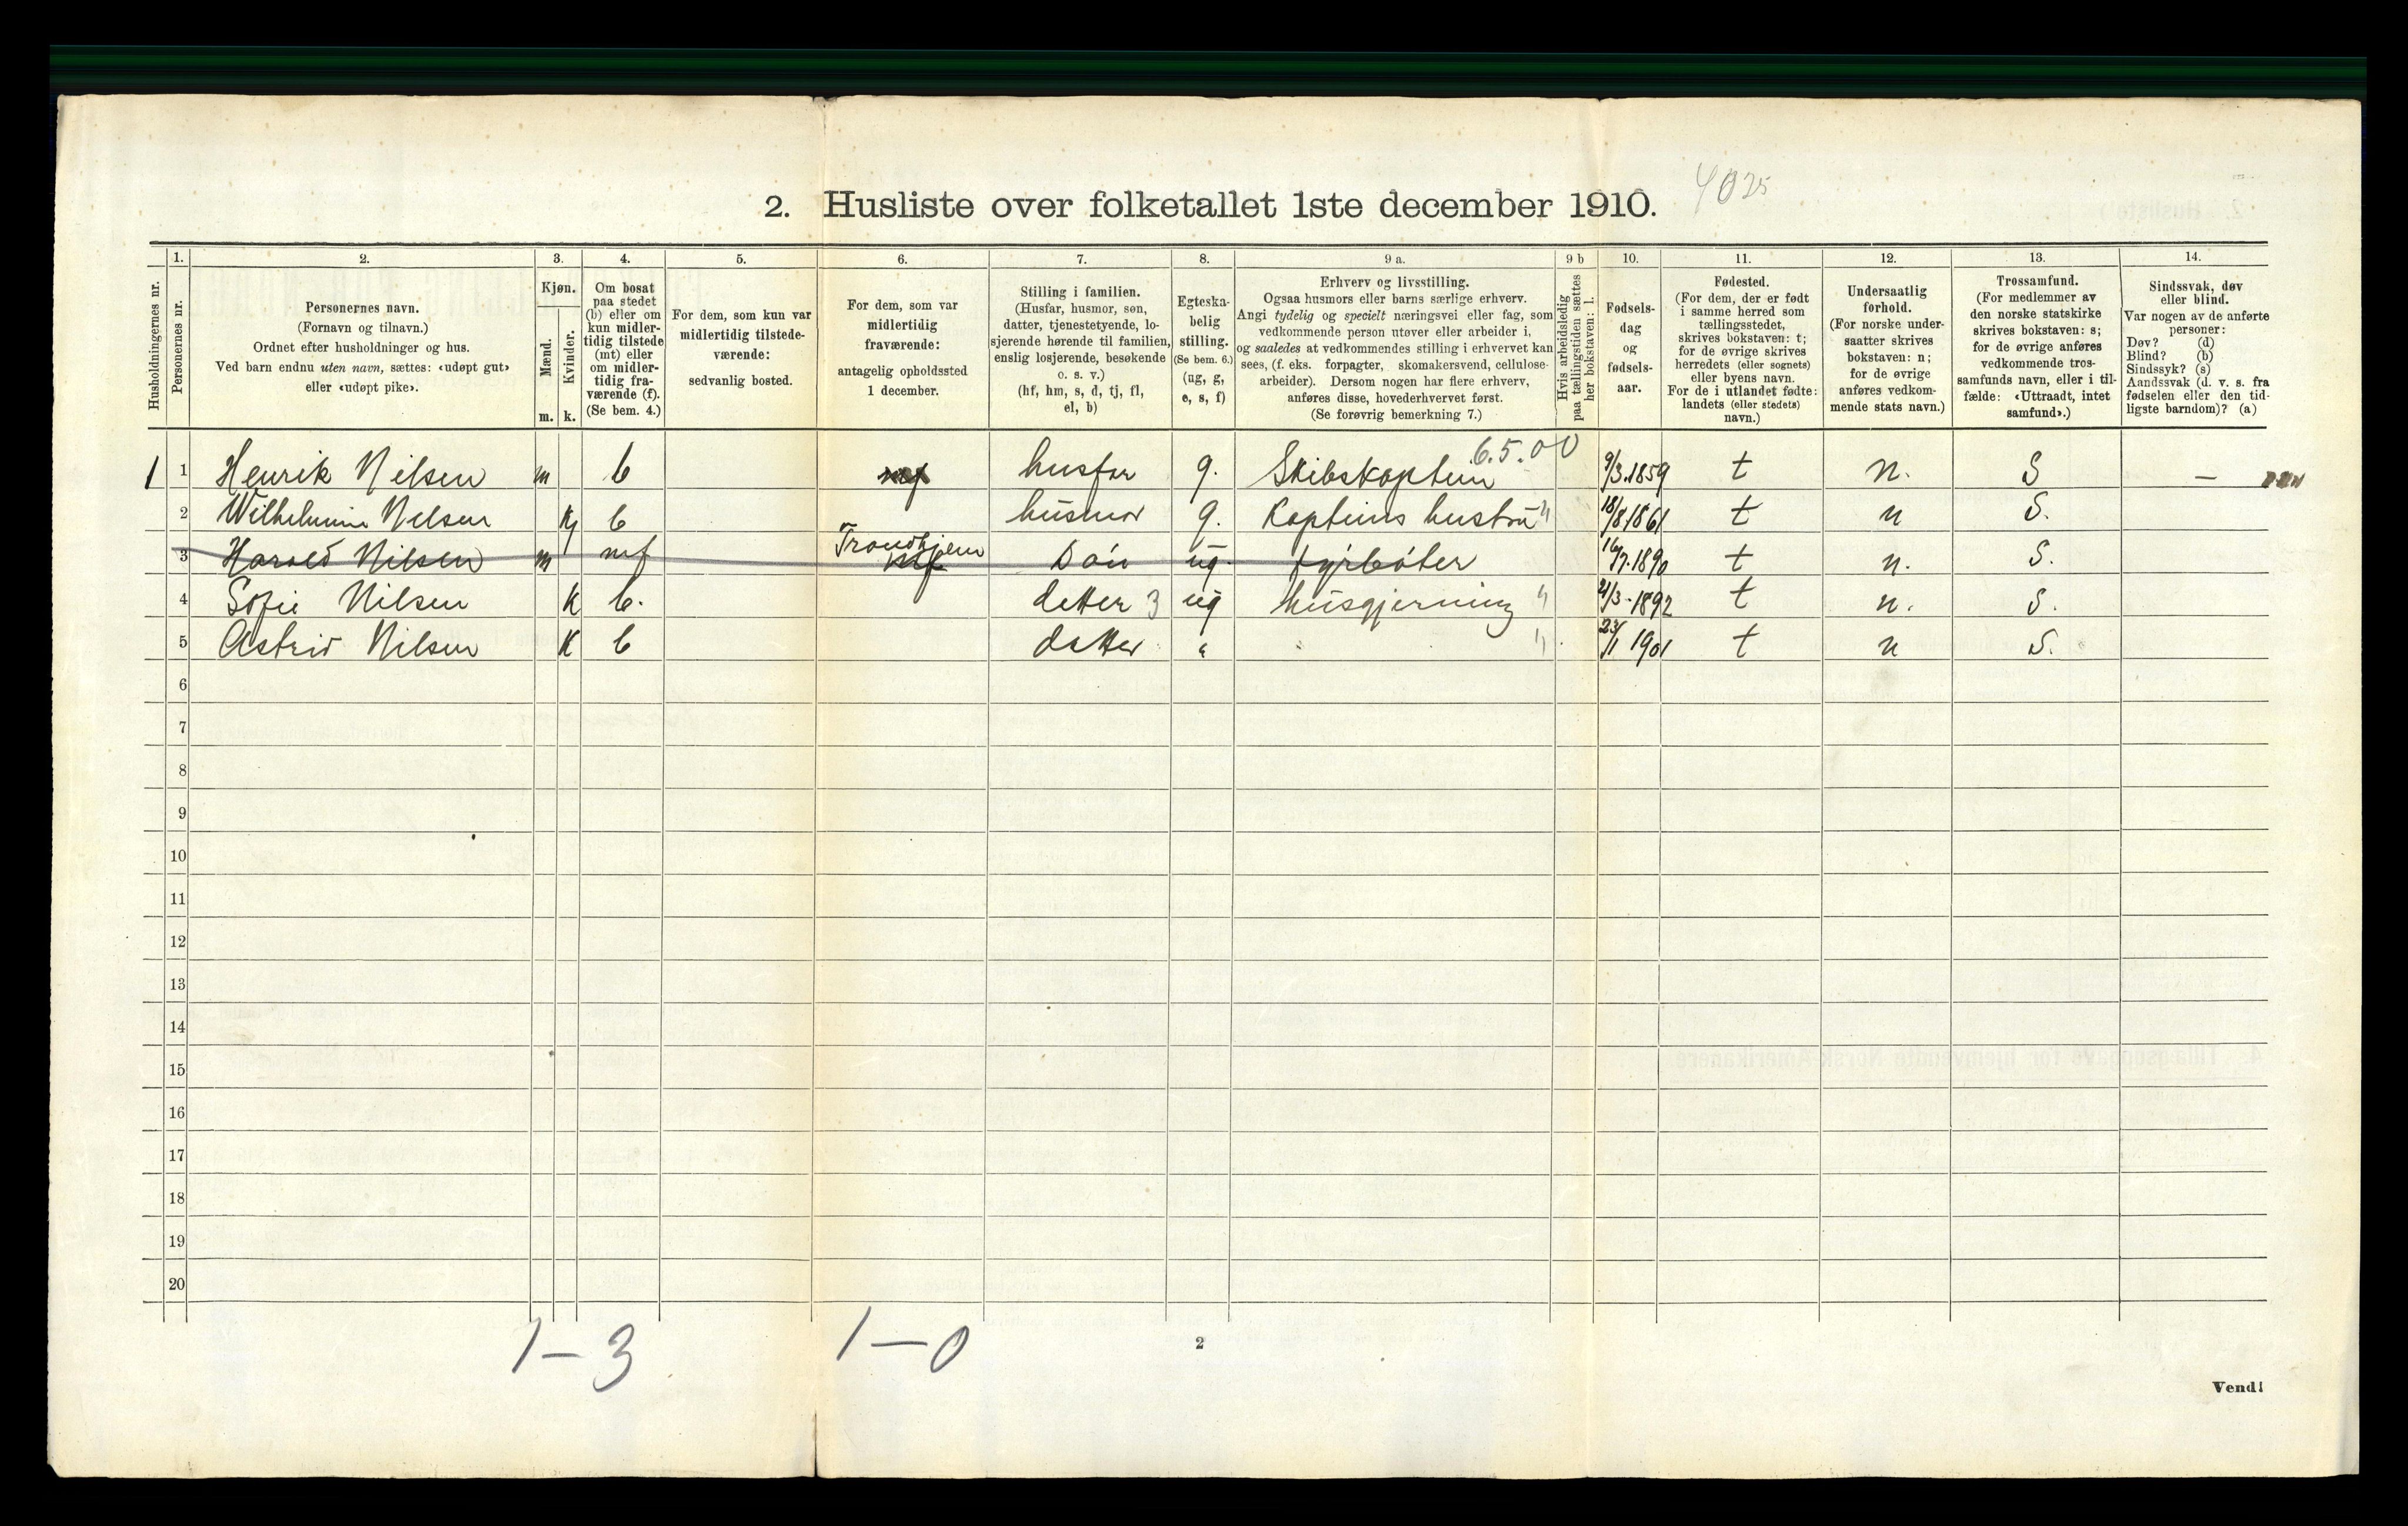 4025
2. Husliste over folketallet 1ste december 1910.
Husholdningernes nr.
1.
Personernes nr.
2.
Personernes navn.
(Fornavn og tilnavn.)
Ordnet efter husholdninger og hus.
Ved barn endnu uten navn, sættes: «udøpt gut»
eller «udøpt pike».
3.
Kjøn.
Mænd.
Kvinder.
m. k.
4.
Om bosat
paa stedet
(b) eller om
kun midler-
tidig tilstede
(mt) eller
om midler-
tidig fra-
værende (f).
(Se bem. 4.)
5.
For dem, som kun var
midlertidig tilstede-
værende:
sedvanlig bosted.
6.
For dem, som var
midlertidig
fraværende:
antagelig opholdssted
1 december.
7.
Stilling i familien.
(Husfar, husmor, søn,
datter, tjenestetyende, lo-
sjerende hørende til familien,
enslig losjerende, besøkende
o. s. v.)
(hf, hm, s, d, tj, fl,
el, b)
8.
Egteska-
belig
stilling.
(Se bem. 6.)
(ug, g,
e, s, f)
9 a.
Erhverv og livsstilling.
Ogsaa husmors eller barns særlige erhverv.
Angi tydelig og specielt næringsvei eller fag, som
vedkommende person utøver eller arbeider i,
og saaledes at vedkommendes stilling i erhvervet kan
sees, (f. eks. forpagter, skomakersvend, cellulose-
arbeider). Dersom nogen har flere erhverv,
anføres disse, hovederhvervet først.
(Se forøvrig bemerkning 7.)
9 b
Hvis arbeidsledig
paa tællingstiden sættes
her bokstaven: l.
10.
Fødsels-
dag
og
fødsels-
aar.
11.
Fødested.
(For dem, der er født
i samme herred som
tællingsstedet,
skrives bokstaven: t;
for de øvrige skrives
herredets (eller sognets)
eller byens navn.
For de i utlandet fødte:
landets (eller stedets)
navn.)
12.
Undersaatlig
forhold.
(For norske under-
saatter skrives
bokstaven: n;
for de øvrige
anføres vedkom-
mende stats navn.)
13.
Trossamfund.
(For medlemmer av
den norske statskirke
skrives bokstaven: s;
for de øvrige anføres
vedkommende tros-
samfunds navn, eller i til-
fælde: «Uttraadt, intet
samfund».)
14.
Sindssvak, døv
eller blind.
Var nogen av de anførte
personer:
Døv? (d)
Blind? (b)
Sindssyk? (s)
Aandssvak (d. v. s. fra
fødselen eller den tid-
ligste barndom)? (a)
6.5.00
1 1 Henrik Nilsen m b husfar g. Skibskaptein 9/3.1859 t n. S –
2 Wilhelmine Nelsen k b husmor g. Kapteins hustru " 18/8 1861 t n S.
3 Harald Nilsen m mf Trondhjem mf Søn ug. fyrbøter 16/7.1890 t n. S.
4 Sofie Nilsen K b. detter 3 ug husgjerning " 21/3-1892 t n. S.
5 Astrid Nilsen K b datter " " 23/1 1901 t n S.
6
7
8
9
10
11
12
13
14
15
16
17
18
19
20
1–3 1–0
2
Vend!